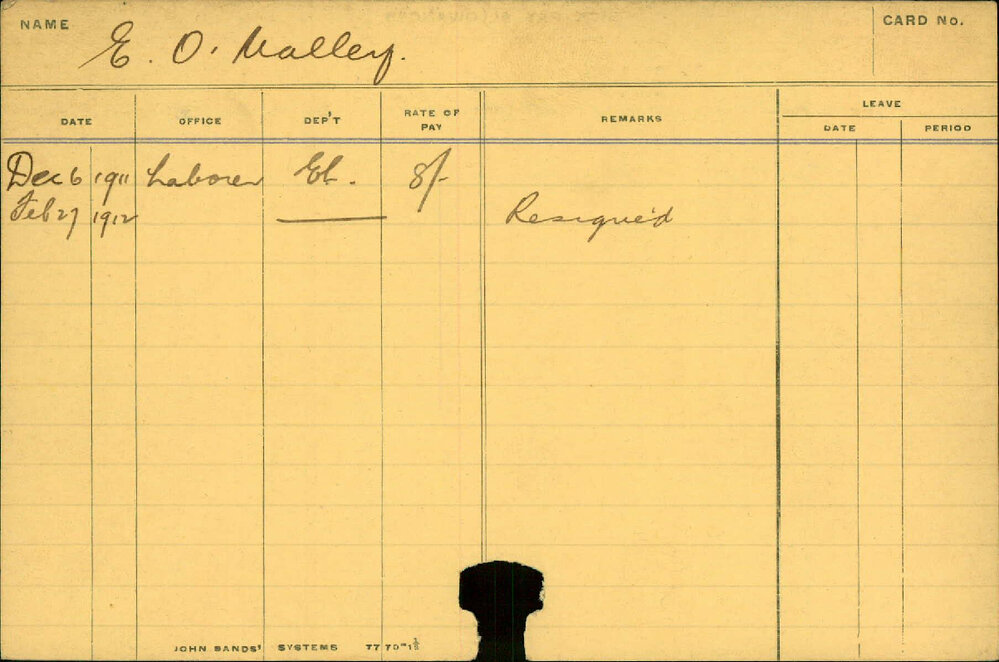 NAME E. O'Malley. CARD No.
DATE OFFICE DEP'T RATE OF PAY REMARKS LEAVE
DATE PERIOD
Dec 6 1911 Laborer 8/-
Feb 27 1912 Resigne'd
JOHN SANDS' SYSTEMS